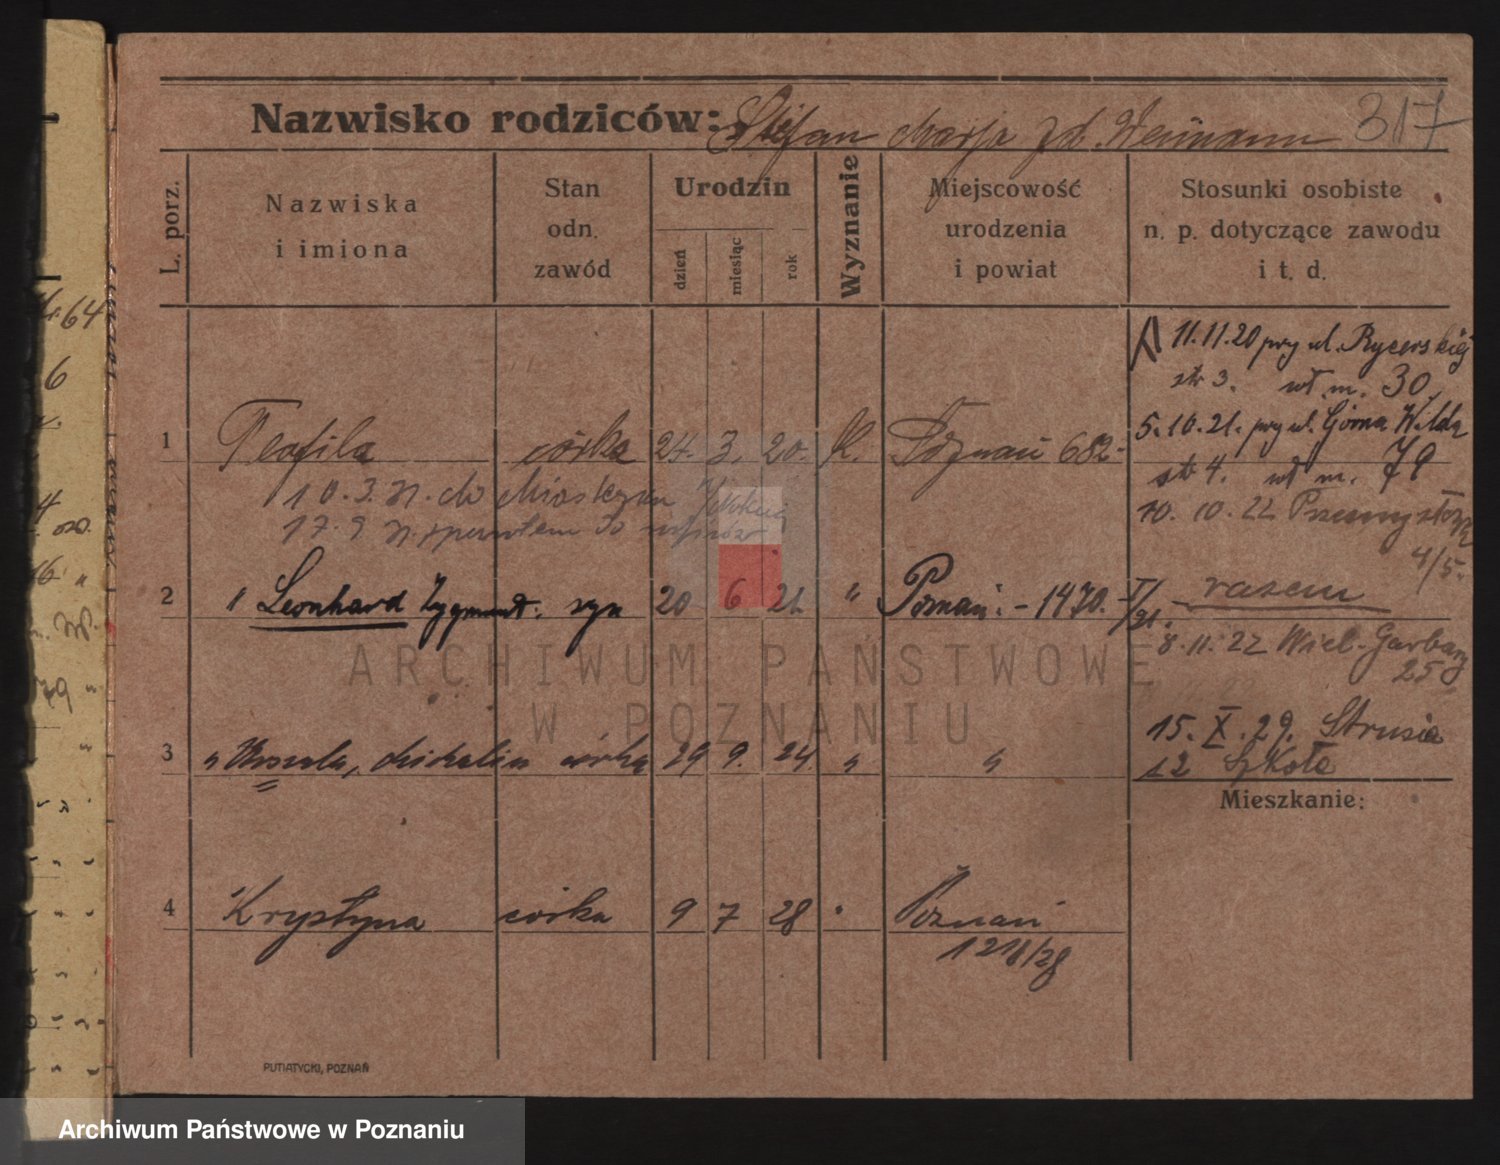 Nazwisko rodziców: Stefan Marja zd. Neumann 317
L. porz.
Nazwiska
i imiona
Stan
odn.
zawód
Urodzin
dzień
miesiąc
rok
Wyznanie
Miejscowość
urodzenia
i powiat
Stosunki osobiste
n. p. dotyczące zawodu
i t. d.
11.11.20 przy ul. Rycerskiej
str 3. wł m. 30,
1 Teofila córka 24. 3. 20. K. Poznań 682-
5.10.21. przy ul. Górna Wilda
str 4. wł m. 79
10. 3. do
17. 9 do
10. 10. 22
4/5.
2 Leonhard Zygmunt. syn 20 6 21 " Poznań. - 1470.
razem
8.11.22 Wiel-Garbary
25
3 " Urszula, córka 29 9. 24. " "
15. X. 29. Strusia
12 Szkoła
Mieszkanie:
4 Krystyna córka 9 7 28 " Poznań
1218/28
PUTIATYCKI, POZNAŃ
ARCHIWUM PAŃSTWOWE
W POZNANIU
64
6
79
Archiwum Państwowe w Poznaniu